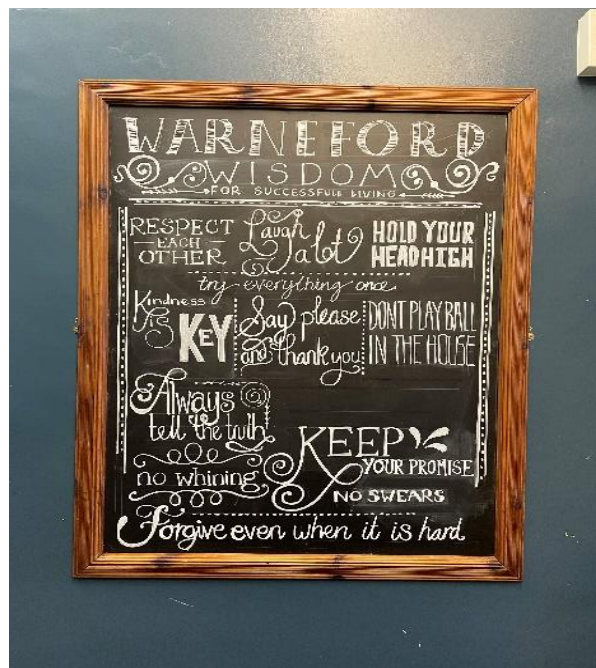 WARNEFORD
WISDOM
FOR SUCCESSFULL LIVING
RESPECT
EACH
OTHER
Laugh
alot
HOLD YOUR
HEAD HIGH
try everything once
Kindness
is
KEY
Say please
and thank you
DONT PLAY BALL
IN THE HOUSE
Always
tell the truth
no whining
KEEP
YOUR PROMISE
NO SWEARS
Forgive even when it is hard